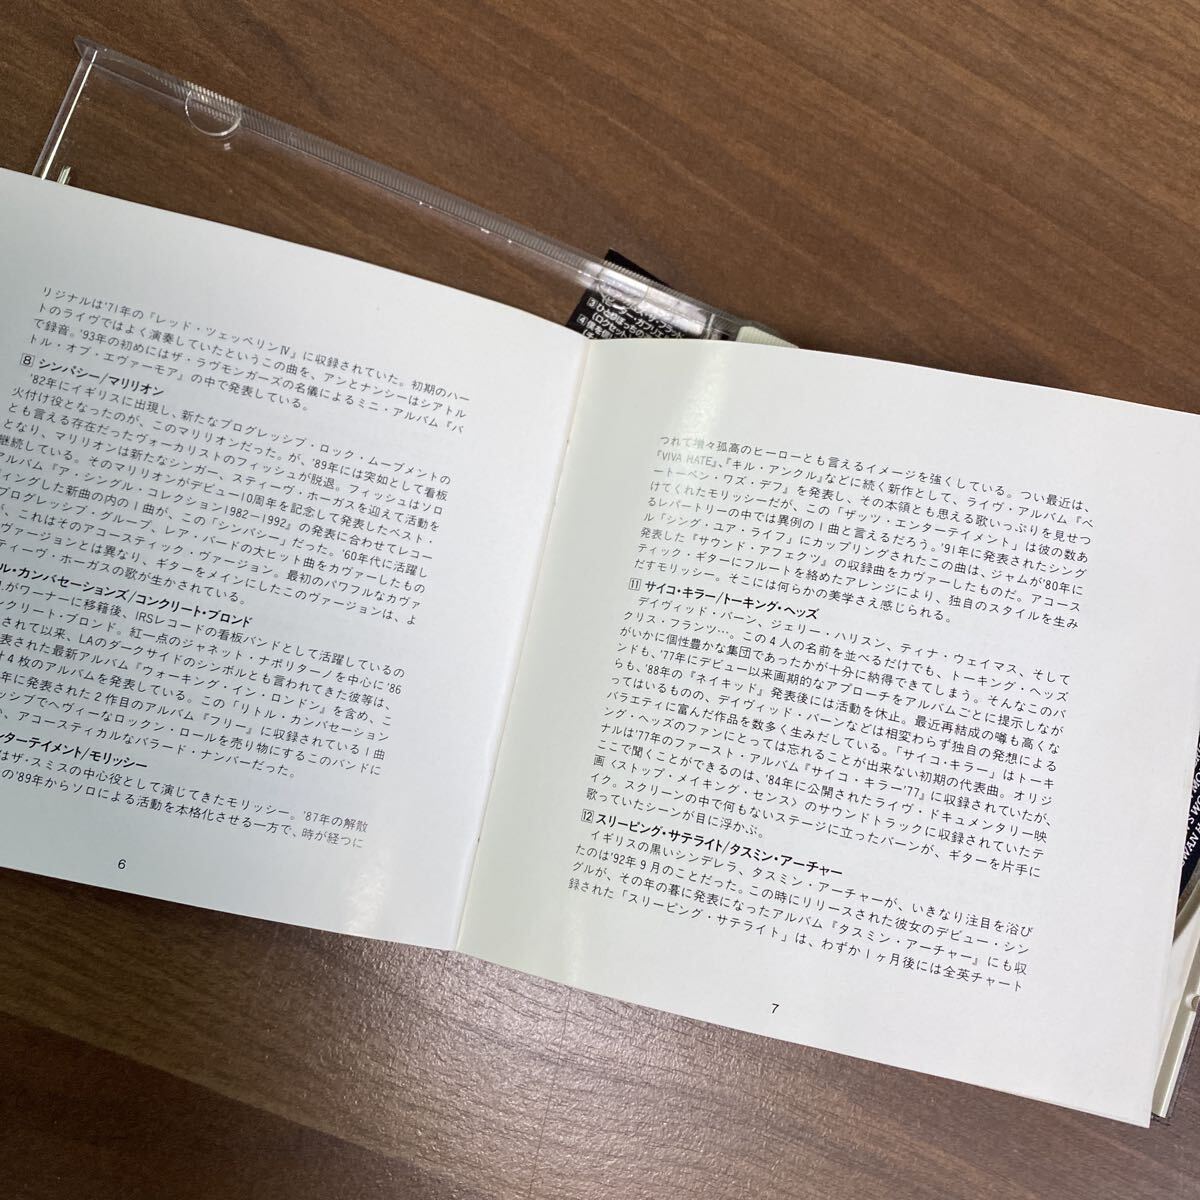 リジナルは'71年の『レッド・ツェッペリンIV』に収録されていた。初期のハー
トのライヴではよく演奏していたというこの曲を、アンとナンシーはシアトル
で録音。'93年の初めにはザ・ラヴモンガーズの名儀によるミニ・アルバム『バ
トル・オブ・エヴァーモア』の中で発表している。
8 シンパシー/マリリオン
'82年にイギリスに出現し、新たなプログレッシブ・ロック・ムーブメントの
火付け役となったのが、このマリリオンだった。が、'89年には突如として看板
とも言える存在だったヴォーカリストのフィッシュが脱退。フィッシュはソロ
となり、マリリオンは新たなシンガー、スティーヴ・ホーガスを迎えて活動を
継続している。そのマリリオンがデビュー10周年を記念して発表したベスト・
アルバム『ア・シングル・コレクション1982-1992』の発表に合わせてレコー
ディングした新曲の内の1曲が、この「シンパシー」だった。'60年代に活躍し
プログレッシブ・グループ、レア・バードの大ヒット曲をカヴァーしたもの
が、これはそのアコースティック・ヴァージョン。最初のパワフルなカヴァ
ヴァージョンとは異なり、ギターをメインにしたこのヴァージョンは、よ
ティーヴ・ホーガスの歌が生かされている。
ル・カンバセーションズ/コンクリート・ブロンド
がワーナーに移籍後、IRSレコードの看板バンドとして活躍しているの
ンクリート・ブロンド。紅一点のジャネット・ナポリターノを中心に'86
されて以来、LAのダークサイドのシンボルとも言われてきた彼等は、
表された最新アルバム『ウォーキング・イン・ロンドン』を含め、こ
計4枚のアルバムを発表している。この「リトル・カンバセーション
年に発表された2作目のアルバム『フリー』に収録されている1曲
ッシブでヘヴィーなロックン・ロールを売り物にするこのバンドに
、アコースティカルなバラード・ナンバーだった。
ンターテイメント/モリッシー
はザ・スミスの中心役として演じてきたモリッシー。'87年の解散
の'89年からソロによる活動を本格化させる一方で、時が経つに
6
つれて増々孤高のヒーローとも言えるイメージを強くしている。つい最近は、
『VIVA HATE』、『キル・アンクル』などに続く新作として、ライヴ・アルバム『ベ
ートーベン・ワズ・デフ』を発表し、その本領とも思える歌いっぷりを見せつ
けてくれたモリッシーだが、この「ザッツ・エンターテイメント」は彼の数あ
るレパートリーの中では異例の1曲と言えるだろう。'91年に発表されたシング
ル「シング・ユア・ライフ」にカップリングされたこの曲は、ジャムが'80年に
発表した『サウンド・アフェクツ』の収録曲をカヴァーしたものだ。アコース
ティック・ギターにフルートを絡めたアレンジにより、独自のスタイルを生み
だすモリッシー。そこには何らかの美学さえ感じられる。
11 サイコ・キラー/トーキング・ヘッズ
デイヴィッド・バーン、ジェリー・ハリスン、ティナ・ウェイマス、そして
クリス・フランツ…。この4人の名前を並べるだけでも、トーキング・ヘッズ
がいかに個性豊かな集団であったかが十分に納得できてしまう。そんなこのバ
ンドも、'77年にデビュー以来画期的なアプローチをアルバムごとに提示しなが
らも、'88年の『ネイキッド』発表後には活動を休止。最近再結成の噂も高くな
ってはいるものの、デイヴィッド・バーンなどは相変わらず独自の発想による
バラエティに富んだ作品を数多く生みだしている。「サイコ・キラー」はトーキ
ング・ヘッズのファンにとっては忘れることが出来ない初期の代表曲。オリジ
ナルは'77年のファースト・アルバム『サイコ・キラー'77』に収録されていたが、
ここで聞くことができるのは、'84年に公開されたライヴ・ドキュメンタリー映
画〈ストップ・メイキング・センス〉のサウンドトラックに収録されていたテ
イク。スクリーンの中で何もないステージに立ったバーンが、ギターを片手に
歌っていたシーンが目に浮かぶ。
12 スリーピング・サテライト/タスミン・アーチャー
イギリスの黒いシンデレラ、タスミン・アーチャーが、いきなり注目を浴び
たのは'92年9月のことだった。この時にリリースされた彼女のデビュー・シン
グルが、その年の暮に発表になったアルバム『タスミン・アーチャー』にも収
録された「スリーピング・サテライト」は、わずか1ヶ月後には全英チャート
7